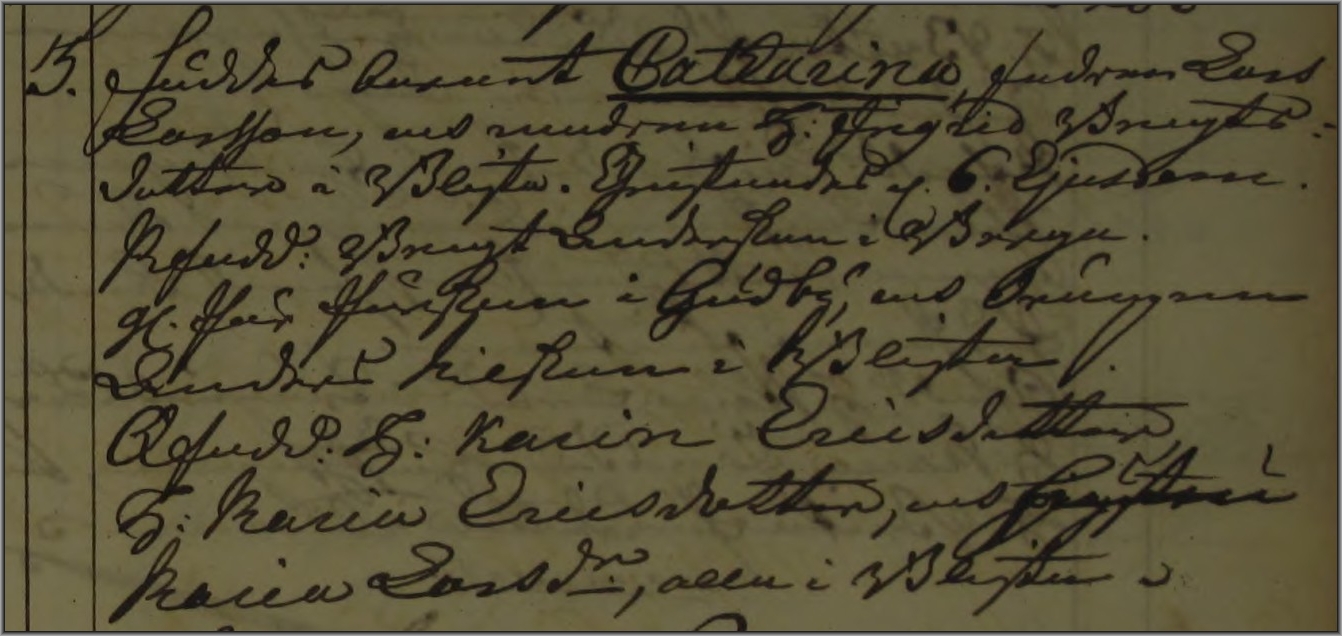 5. föddes barnet Catharina, fadren Lars
Larsson, och modren H: Ingrid Bengts-
dotter i Blixta. Christnades d. 6. Ejusdem.
Bengt Andersson i Berga.
gl. Pär Pärsson i Gudby, och Drängen
Anders Nilsson i Blixta.
H: Karin Ericsdotter,
H: Karin Ericsdotter, och
Karin Larsdr, alla i Blixta